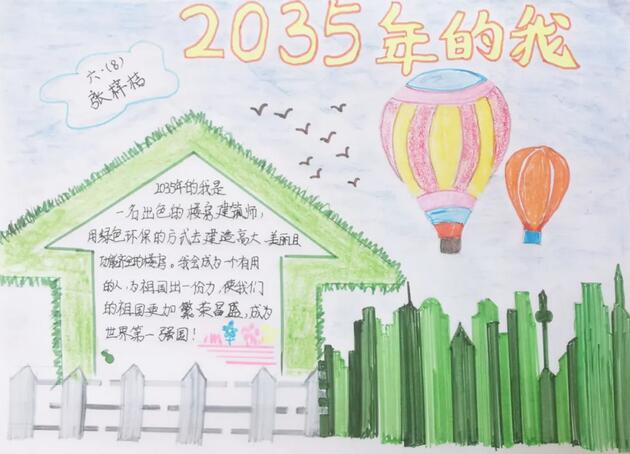 2035年的我
六·(8)
张梓桔
2035年的我是
一名出色的楼房建筑师,
用绿色环保的方式去建造高大、美丽且
功能齐全的楼房。我会成为一个有用
的人,为祖国出一份力,使我们
的祖国更加繁荣昌盛,成为
世界第一强国!